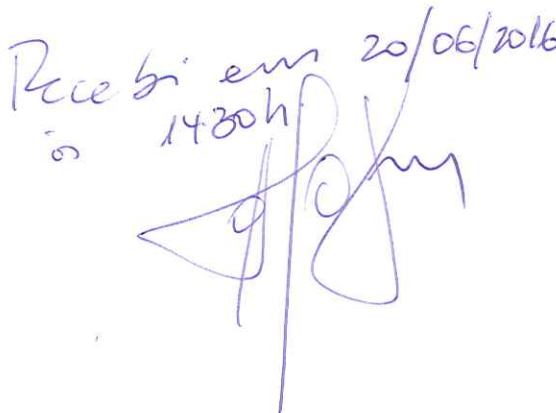 Recebi em 20/06/2016
às 1430h